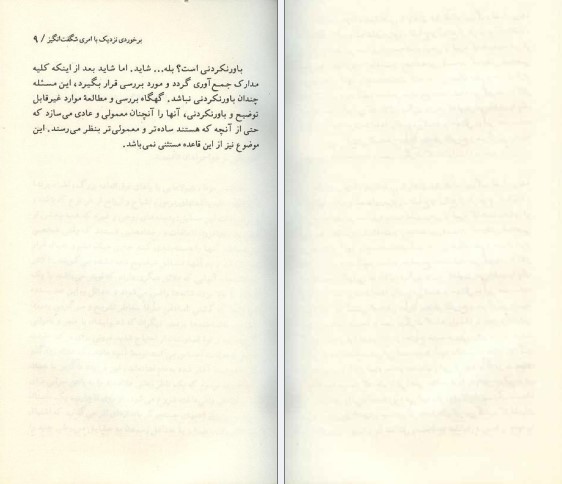 برخوردی نزدیک با امری شگفت‌انگیز / ۹
باورنکردنی است؟ بله... شاید. اما شاید بعد از اینکه کلیه
مدارک جمع‌آوری گردد و مورد بررسی قرار بگیرد، این مسئله
چندان باورنکردنی نباشد. گهگاه بررسی و مطالعهٔ موارد غیرقابل
توضیح و باورنکردنی، آنها را آنچنان معمولی و عادی می‌سازد که
حتی از آنچه که هستند ساده‌تر و معمولی‌تر بنظر می‌رسند. این
موضوع نیز از این قاعده مستثنی نمی‌باشد.